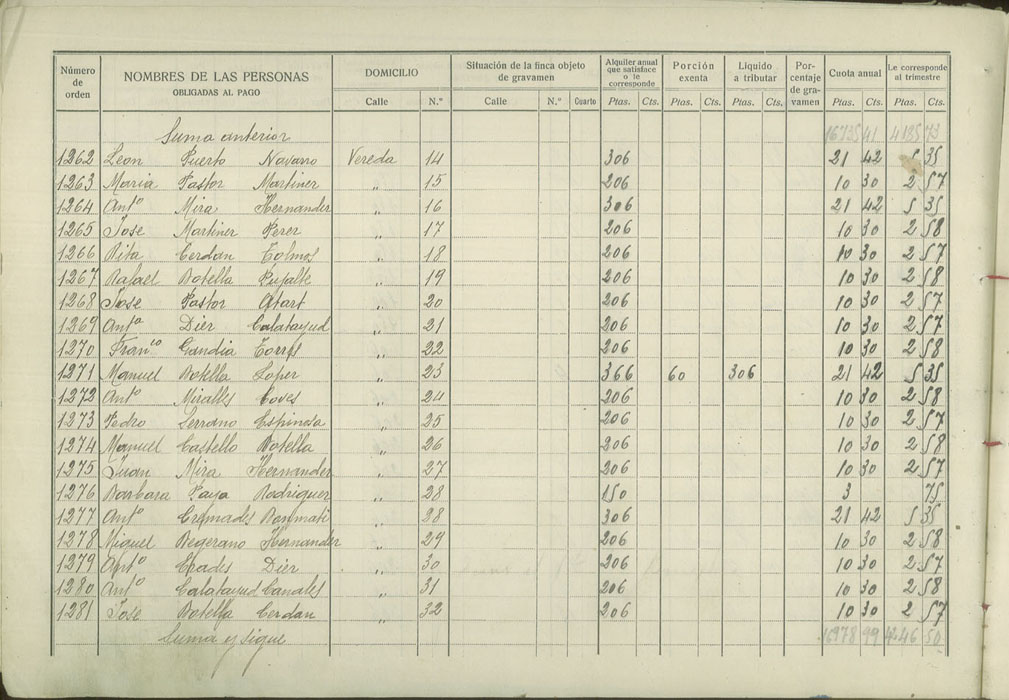 Número de orden | NOMBRES DE LAS PERSONAS OBLIGADAS AL PAGO | DOMICILIO | Situación de la finca objeto de gravamen | Alquiler anual que satisface o le corresponde | Porción exenta | Líquido a tributar | Por-centaje de gra-vamen | Cuota anual | Le corresponde al trimestre
Calle | N.º | Calle | N.º | Cuarto | Ptas. | Cts. | Ptas. | Cts. | Ptas. | Cts. | Ptas. | Cts. | Ptas. | Cts.
Suma anterior 16735 41 4185 73
1262 Leon Puerto Navarro Vereda 14 306 21 42 5 35
1263 Maria Pastor Martinez " 15 206 10 30 2 57
1264 Antº Mira Hernandez " 16 306 21 42 5 35
1265 Jose Martinez Perez " 17 206 10 30 2 58
1266 Rita Cerdan Tolmos " 18 206 10 30 2 57
1267 Rafael Botella Pujalte " 19 206 10 30 2 58
1268 Jose Pastor " 20 206 10 30 2 57
1269 Antª Diez Calatayud " 21 206 10 30 2 57
1270 Franco Gandia Torres " 22 206 10 30 2 58
1271 Manuel Botella Lopez " 23 366 60 306 21 42 5 35
1272 Antº Miralles Coves " 24 206 10 30 2 58
1273 Pedro Serrano Espinosa " 25 206 10 30 2 57
1274 Manuel Castello Botella " 26 206 10 30 2 58
1275 Juan Mira Hernandez " 27 206 10 30 2 57
1276 Barbara Paya Rodriguez " 28 150 3 75
1277 Antº Cremades " 28 306 21 42 5 35
1278 Miguel Begerano Hernandez " 29 206 10 30 2 58
1279 Antº Diez " 30 206 10 30 2 57
1280 Antº Calatayud Canales " 31 206 10 30 2 58
1281 Jose Botella Cerdan " 32 206 10 30 2 57
Suma y sigue 16978 99 4246 50